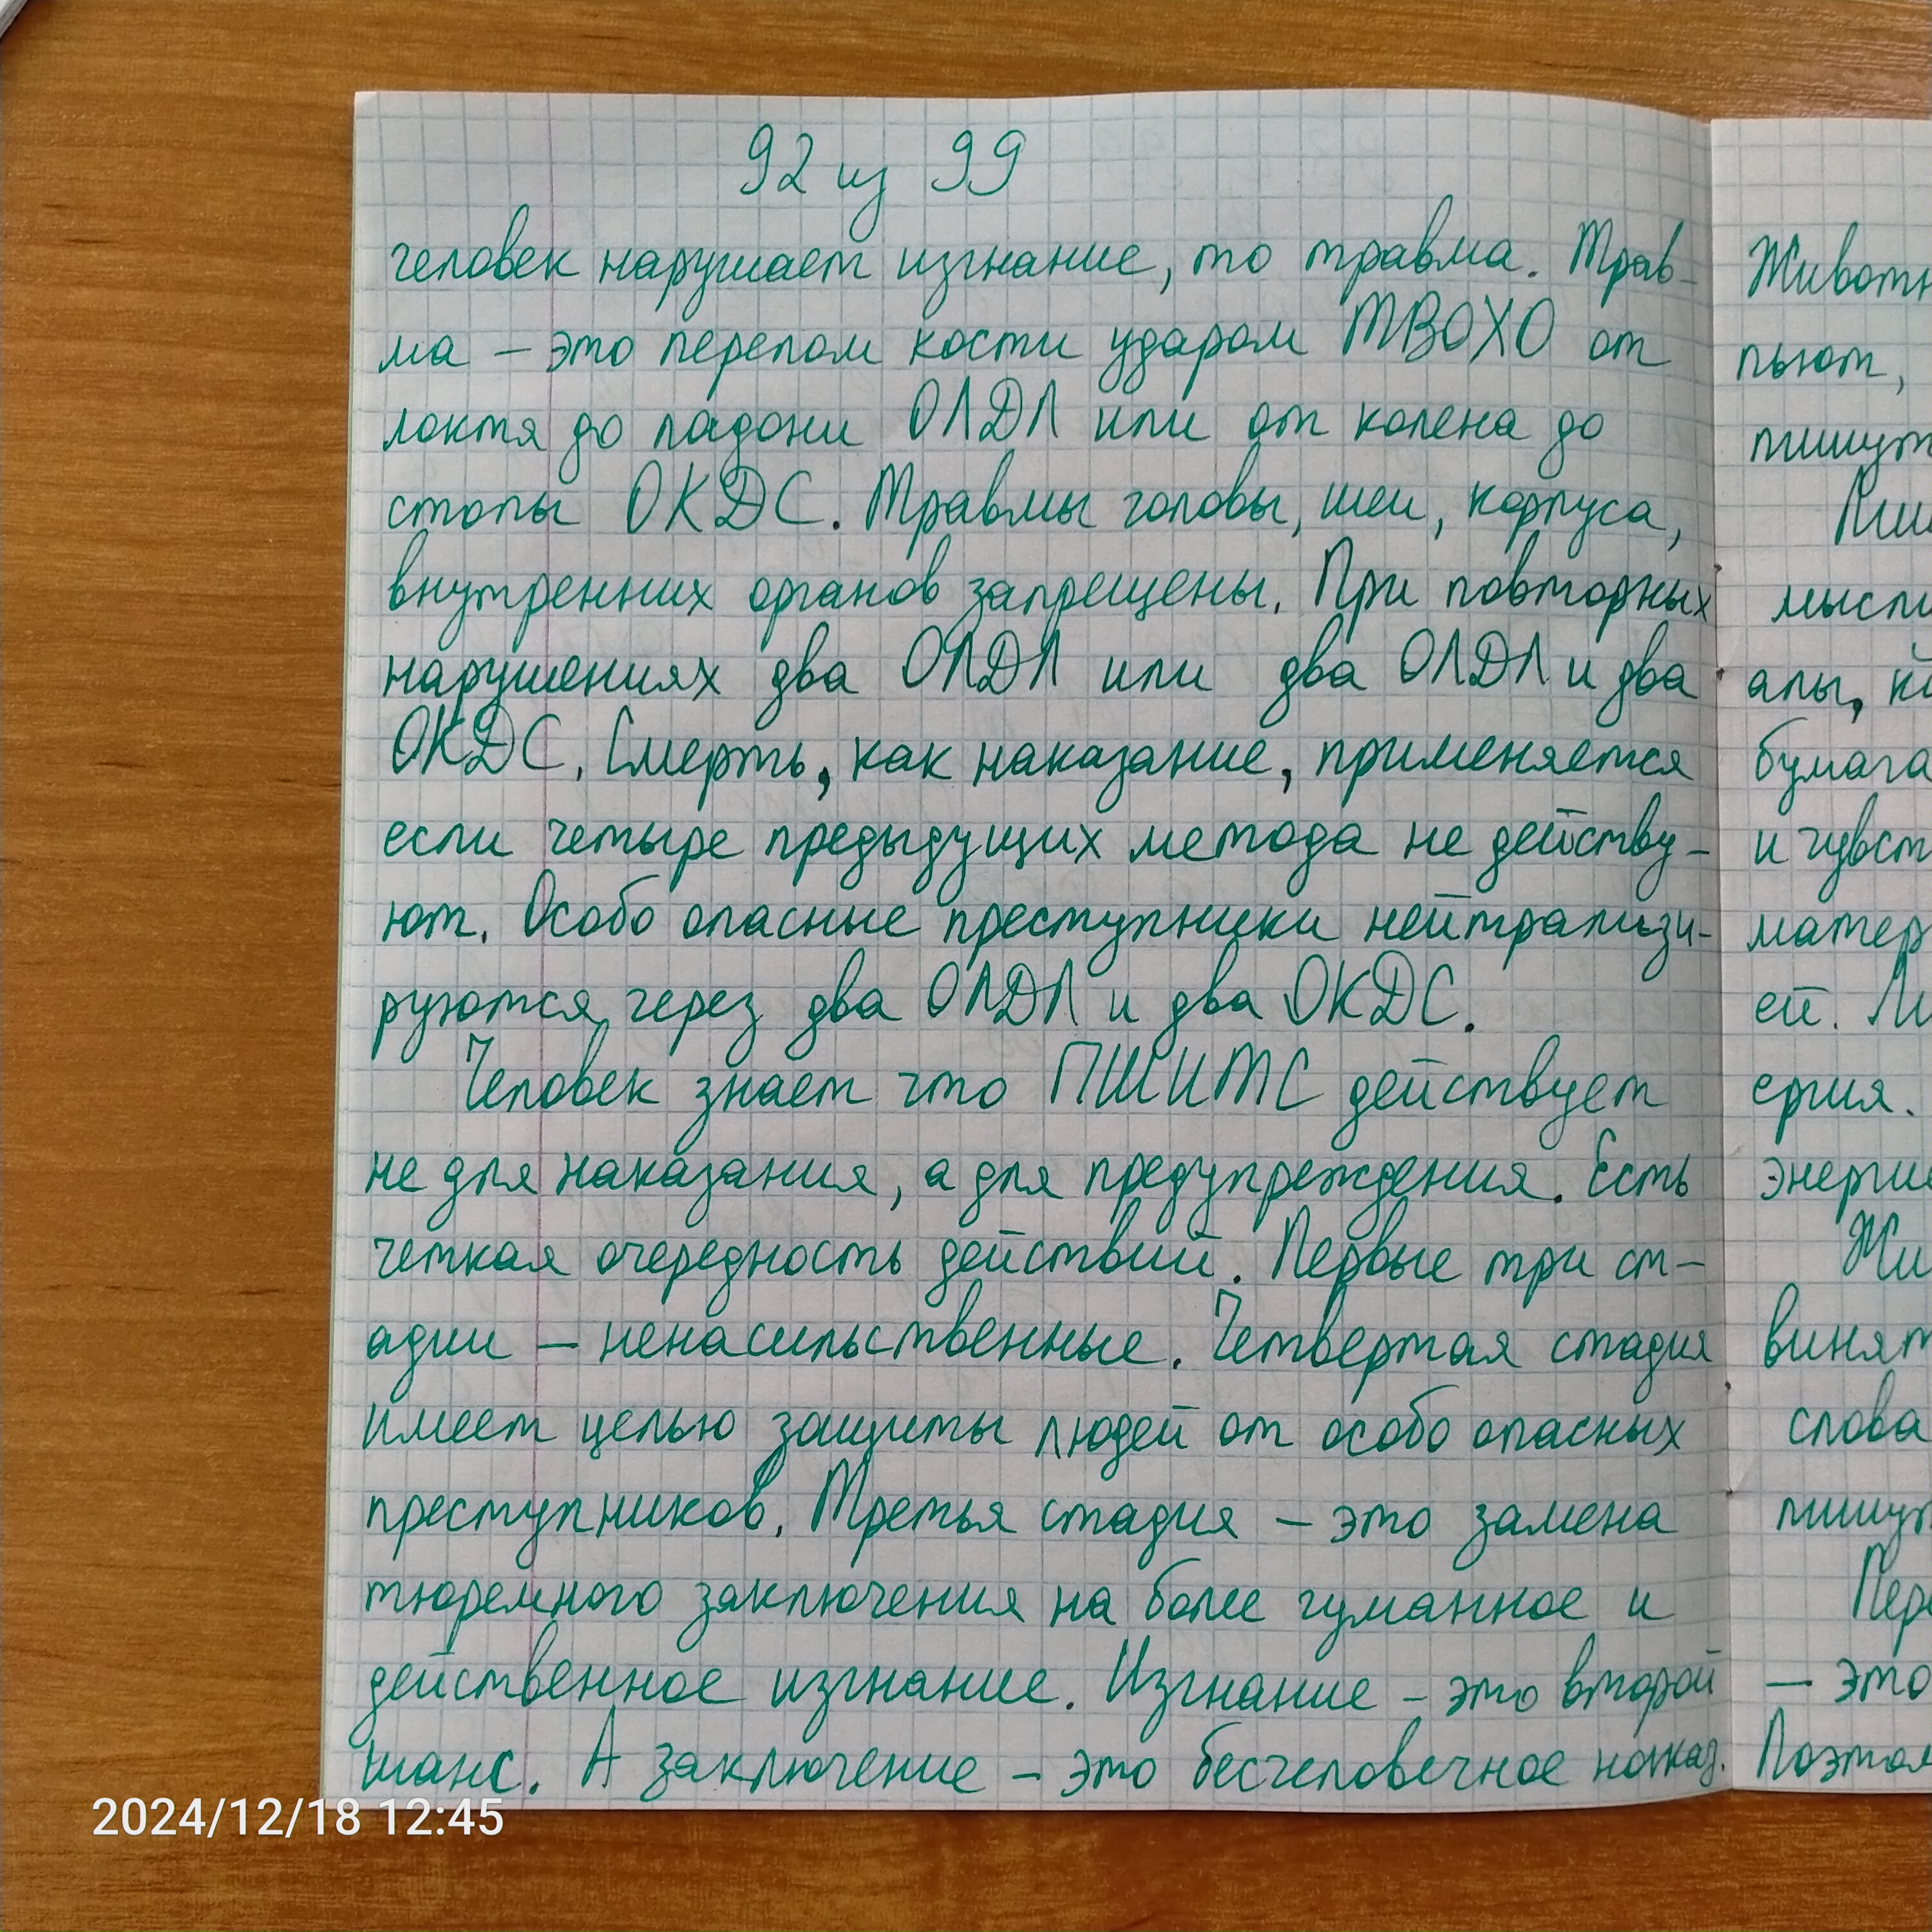 92 из 99
человек нарушает изгнание, то травма. Трав-
ма – это перелом кости ударом ТВОХО от
локтя до ладони ОЛДЛ или от колена до
стопы ОКДС. Травмы головы, шеи, корпуса,
внутренних органов запрещены. При повторных
нарушениях два ОЛДЛ или два ОЛДЛ и два
ОКДС. Смерть, как наказание, применяется
если четыре предыдущих метода не действу-
ют. Особо опасные преступники нейтрализи-
руются через два ОЛДЛ и два ОКДС.
Человек знает что ПШИТС действует
не для наказания, а для предупреждения. Есть
четкая очередность действий. Первые три ст-
адии – ненасильственные. Четвертая стадия
имеет целью защиты людей от особо опасных
преступников. Третья стадия – это замена
тюремного заключения на более гуманное и
действенное изгнание. Изгнание – это второй
шанс. А заключение – это бесчеловечное наказ.
Животн
пьют,
пишут
Пи
мысли
алы, ко
бумага
и чувст
матер
ей.
ергия.
энергие
Жи
винят
слова
пишут
Пер
– это
Поэтом
2024/12/18 12:45